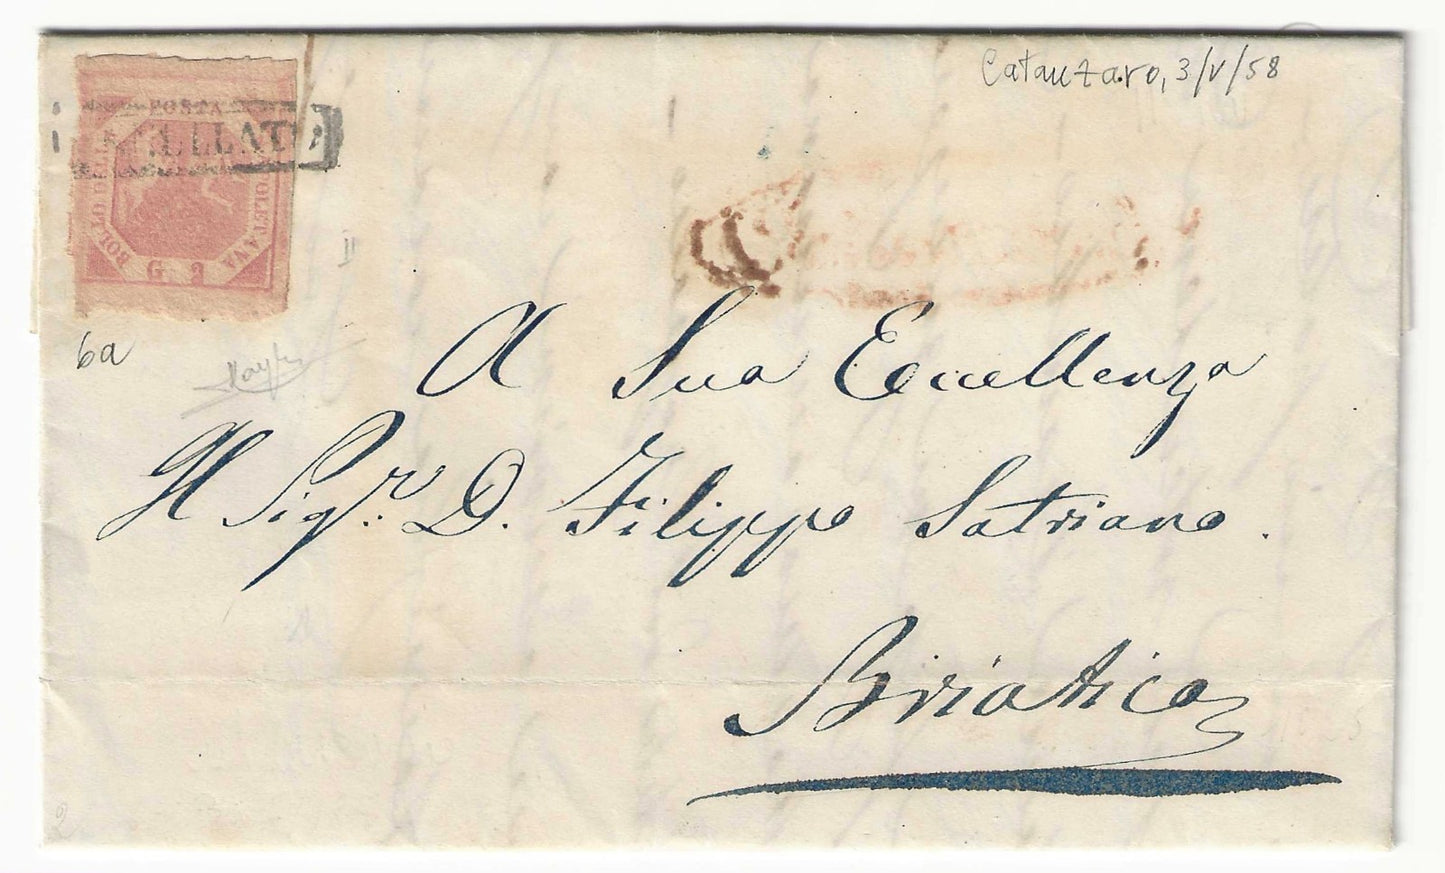 Catanzaro, 3/V/58
POSTA
BOLLO DELLA
NAPOLETANA
G. 2
ANNULLATO
6a
A Sua Eccellenza
Il Sigr. D. Filippo Satriano.
Briatico
2